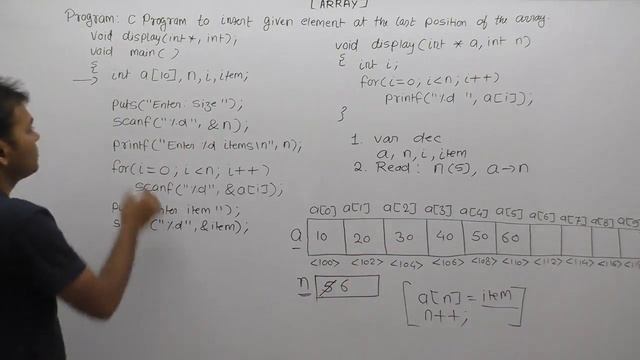 [ARRAY]
Program: C Program to insert given element at the last position of the array.
void display(int*, int);
void main()
{
int a[10], n, i, item;
puts("Enter Size");
scanf("%d", &n);
printf("Enter %d items\n", n);
for(i=0; i<n; i++)
scanf("%d", &a[i]);
Enter item");
("%d", &item);
void display(int * a, int n)
{ int i;
for(i=0; i<n; i++)
printf("%d ", a[i]);
}
1. var dec
a, n, i, item
2. Read: n(5), a→n
a[0] a[1] a[2] a[3] a[4] a[5] a[6] a[7] a[8]
a 10 20 30 40 50 60
<100> <102> <104> <106> <108> <110> <112> <114> <116>
n 5 6
a[n] = item
n++;